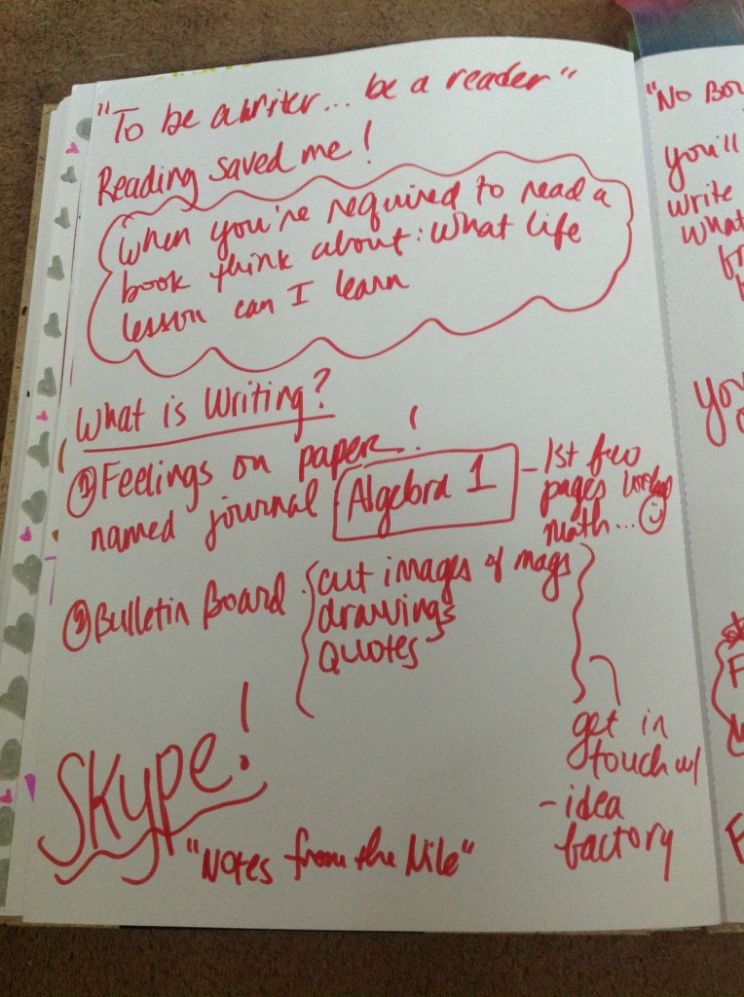 "To be a writer... be a reader"
Reading saved me!
When you're required to read a
book think about: What life
lesson can I learn
What is Writing?
① Feelings on paper!
named journal Algebra 1 - 1st few
pages
math... ☺
② Bulletin Board cut images of mags
drawings
Quotes
get in
touch w/
- idea
factory
SKype!
"Notes from the Nile"
"No
you'll
write
what